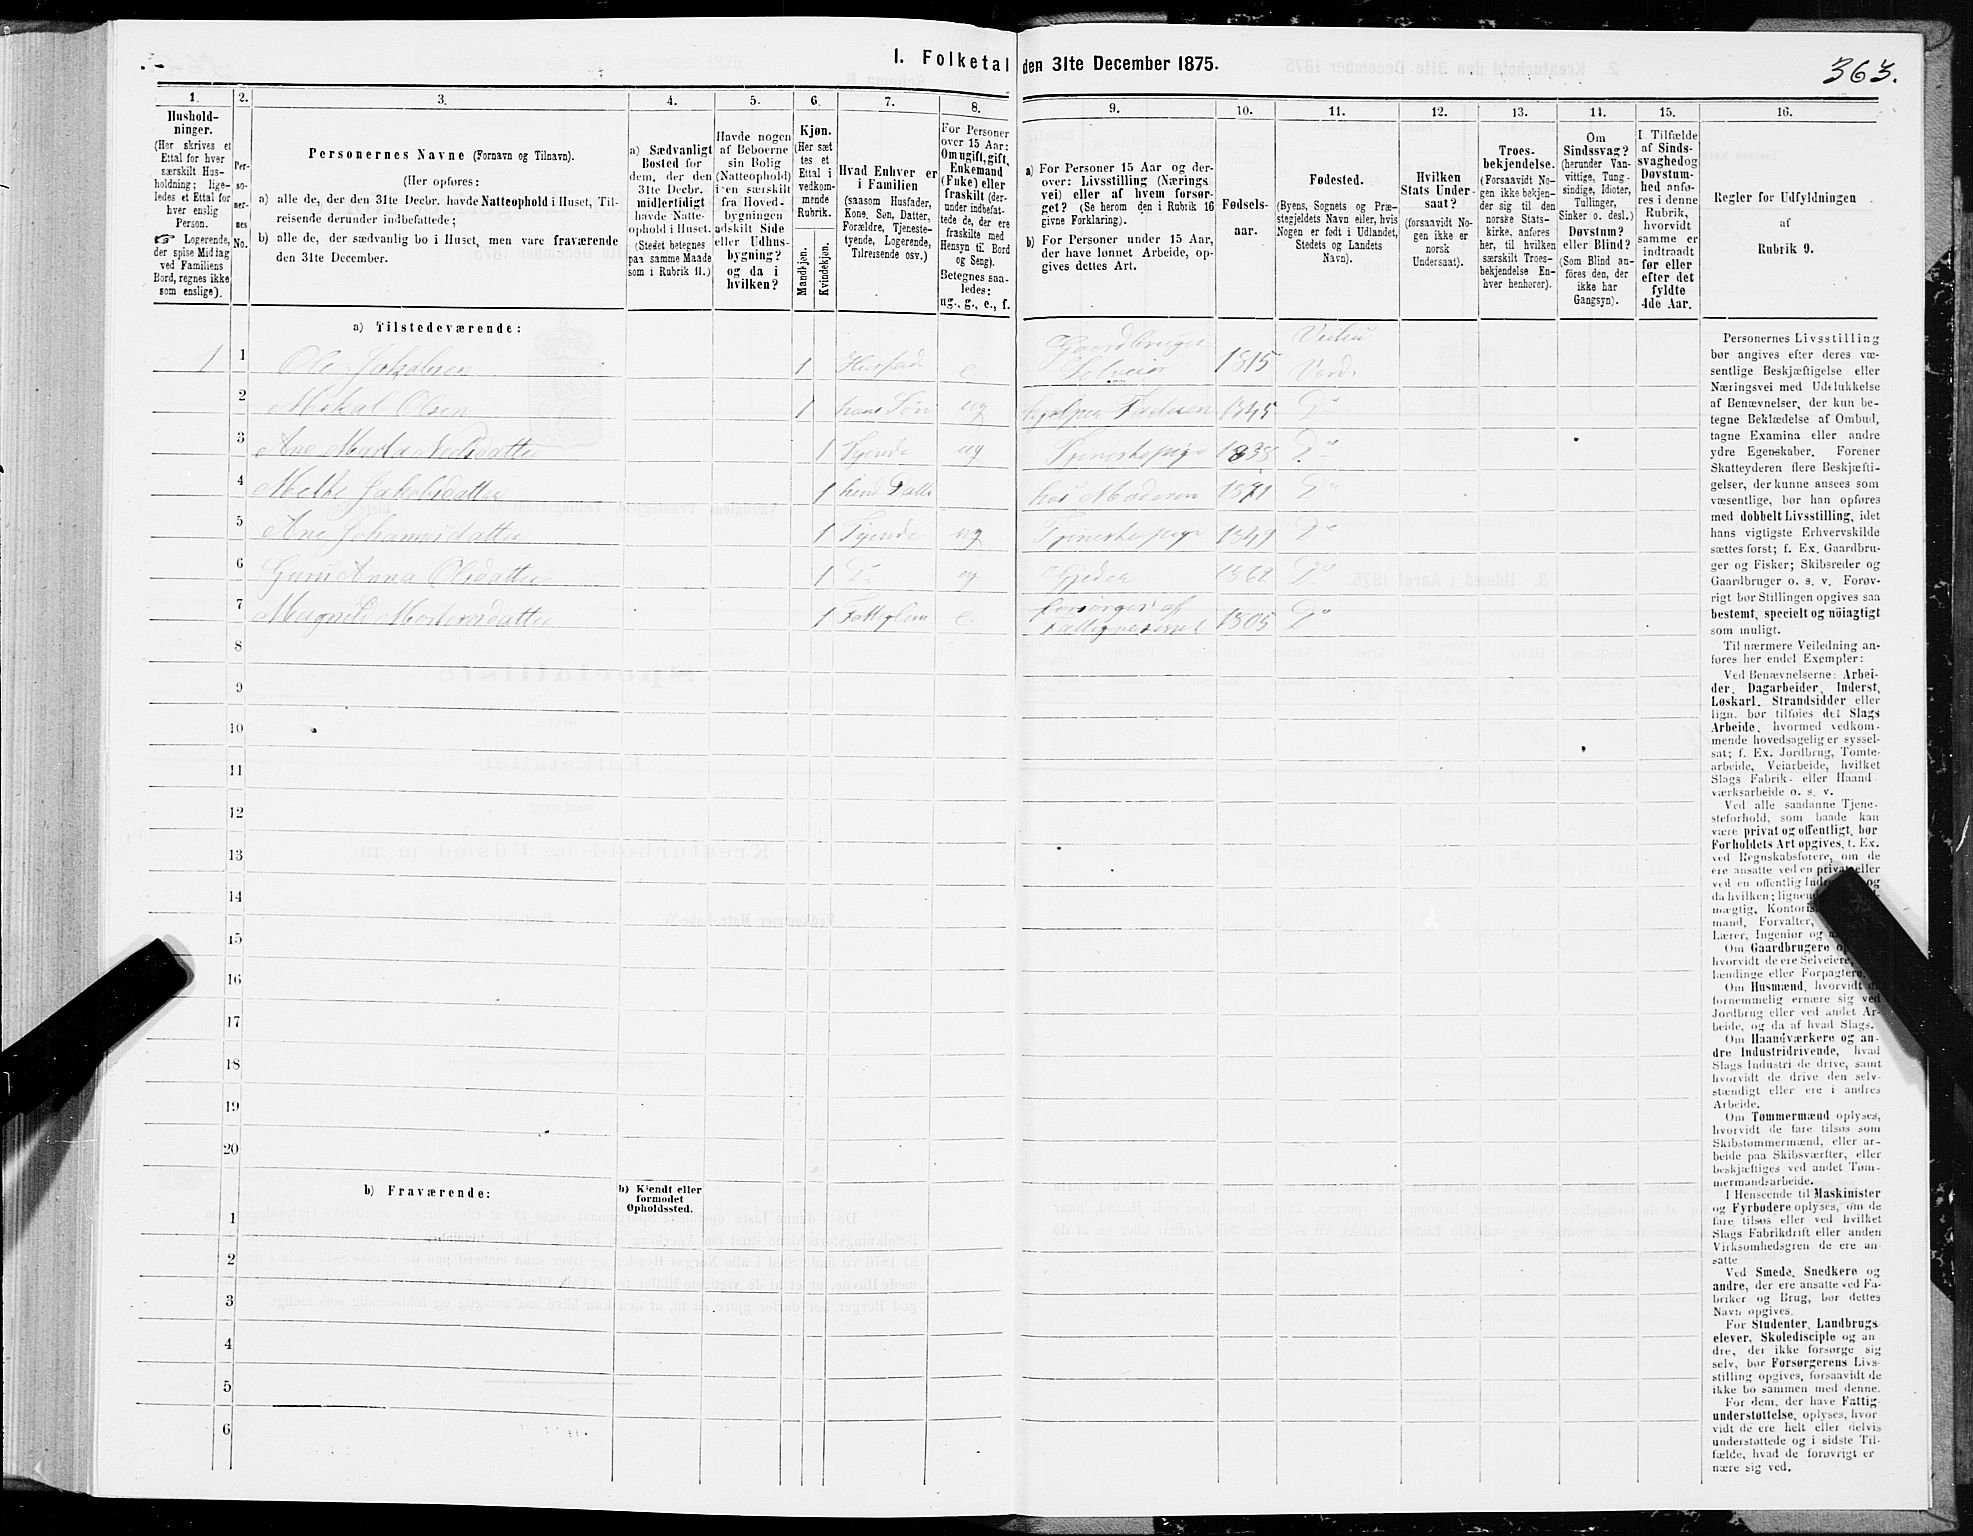 I. Folketal den 31te December 1875.
363.
1.
Hushold-
ninger.
(Her skrives et
Ettal for hver
særskilt Hus-
holdning; lige-
ledes et Ettal for
hver enslig
Person.
☞ Logerende,
der spise Middag
ved Familiens
Bord, regnes ikke
som enslige).
2.
Per-
so-
ner-
nes
No.
3.
Personernes Navne (Fornavn og Tilnavn).
(Her opføres:
a) alle de, der den 31te Decbr. havde Natteophold i Huset, Til-
reisende derunder indbefattede;
b) alle de, der sædvanlig bo i Huset, men vare fraværende
den 31te December.
4.
a) Sædvanligt
Bosted for
dem, der den
31te Decbr.
midlertidigt
havde Natte-
ophold i Huset.
(Stedet betegnes
paa samme Maade
som i Rubrik 11.)
5.
Havde nogen
af Beboerne
sin Bolig
(Natteophold)
i en særskilt
fra Hoved-
bygningen
adskilt Side
eller Udhus-
bygning?
og da i
hvilken?
6.
Kjøn.
(Her sæt
tes et
Ettal i
vedkom-
mende
Rubrik.
Mandkjøn.
Kvindekjøn.
7.
Hvad Enhver er
i Familien
(saasom Husfader,
Kone, Søn, Datter,
Forældre, Tjeneste-
tyende, Logerende,
Tilreisende osv.)
8.
For Personer
over 15 Aar:
Om ugift, gift,
Enkemand
(Enke) eller
fraskilt (der-
under indbefat-
tede de, der ere
fraskilte med
Hensyn til Bord
og Seng).
Betegnes saa-
ledes:
ug., g., e., f.
9.
a) For Personer 15 Aar og der-
over: Livsstilling (Nærings
vei) eller af hvem forsør-
get? (Se herom den i Rubrik 16
givne Forklaring).
b) For Personer under 15 Aar,
der have lønnet Arbeide, op-
gives dettes Art.
10.
Fødsels-
aar.
11.
Fødested.
(Byens, Sognets og Præ-
stegjeldets Navn eller, hvis
Nogen er født i Udlandet,
Stedets og Landets
Navn).
12.
Hvilken
Stats Under-
saat?
(forsaavidt No-
gen ikke er
norsk
Undersaat).
13.
Troes-
bekjendelse.
(Forsaavidt No-
gen ikke bekjen-
der sig til den
norske Stats-
kirke, anføres
her, til hvilken
særskilt Troes-
bekjendelse En-
hver henhører).
14.
Om
Sindssvag?
(herunder Van-
vittige, Tung-
sindige, Idioter,
Tullinger,
Sinker o. desl.)
Døvstum?
eller Blind?
(Som Blind an-
føres den, der
ikke har
Gangsyn).
15.
I Tilfælde
af Sinds-
svaghed og
Døvstum-
hed anfø-
res i denne
Rubrik,
hvorvidt
samme er
indtraadt
før eller
efter det
fyldte
4de Aar.
16.
Regler for Udfyldningen
af
Rubrik 9.
a) Tilstedeværende:
1 1 Ole Jakobsen 1 Husfad e. Gaardbruger Selveier 1815
2 Mikal Olsen 1 hans Søn ug hjelper Faderen 1845 D°
3 Ane Marta Nilsdatter 1 Tyende ug Tjenestepige 1838 D°
4 Mette Jakobsdatter 1 hos Moderen 1871 D°
5 Ane Johannesdatter 1 Tyende ug Tjenestepige 1849 D°
6 Anna Olsdatter 1 D° ug Gjeder 1862 D°
7 1 e. forsørges af Fattigvæsenet 1805 D°
8
9
10
11
12
13
14
15
16
17
18
19
20
b) Fraværende:
b) Kjendt eller
formodet
Opholdssted.
1
2
3
4
5
6
Personernes Livsstilling
bør angives efter deres væ-
sentlige Beskjæftigelse eller
Næringsvei med Udelukkelse
af Benævnelser, der kun be-
tegne Beklædelse af Ombud,
tagne Examina eller andre
ydre Egenskaber. Forener
Skatteyderen flere Beskjæfti-
gelser, der kunne ansees som
væsentlige, bør han opføres
med dobbelt Livsstilling, idet
hans vigtigste Erhvervskilde
sættes først; f. Ex. Gaardbru-
ger og Fisker; Skibsreder og
Gaardbruger o. s. v. Forøv-
rigt bør Stillingen opgives saa
bestemt, specielt og nöiagtigt
som muligt.
Til nærmere Veiledning an-
føres her endel Exempler:
Ved Benævnelserne: Arbei-
der, Dagarbeider, Inderst,
Løskarl, Strandsidder eller
lign. bør tilføies det Slags
Arbeide, hvormed vedkom-
mende hovedsagelig er syssel-
sat; f. Ex. Jordbrug, Tomte-
arbeide, Veiarbeide, hvilket
Slags Fabrik- eller Haand-
værksarbeide o. s. v.
Ved alle saadanne Tjene-
steforhold, som baade kan
være privat og offentligt, bør
Forholdets Art opgives, f. Ex.
ved Regnskabsførere, om de
ere ansatte ved en privat eller
ved en offentlig og
da hvilken;
mægtig,
mand, Forvalter,
Lærer, Ingeniør og
Om Gaardbrugere
hvorvidt de ere Selveiere,
lændinge eller Forpagtere.
Om Husmænd, hvorvidt de
fornemmelig ernære sig ved
Jordbrug eller ved andet Ar-
beide, og da af hvad Slags.
Om Haandværkere og an-
dre Industridrivende, hvad
Slags Industri de drive, samt
hvorvidt de drive den selv-
stændigt eller ere i andres
Arbeide.
Om Tømmermænd oplyses,
hvorvidt de fare tilsøs som
Skibstømmermænd, eller ar-
beide paa Skibsværfter, eller
beskjæftiges ved andet Tøm-
mermandsarbeide.
I Henseende til Maskinister
og Fyrbødere oplyses, om de
fare tilsøs eller ved hvilket
Slags Fabrikdrift eller anden
Virksomhedsgren de ere an-
satte
Ved Smede, Snedkere og
andre, der ere ansatte ved Fa-
briker og Brug, bør dettes
Navn opgives.
For Studenter, Landbrugs
elever, Skoledisciple og an-
dre, der ikke forsørge sig
selv, bør Forsørgerens Livs-
stilling opgives, forsaavidt de
ikke bo sammen med denne.
For dem, der have Fattig
understøttelse, oplyses, hvor-
vidt de ere helt eller delvis
understøttede og i sidste Til-
fælde, hvad de forøvrigt er
nære sig ved.